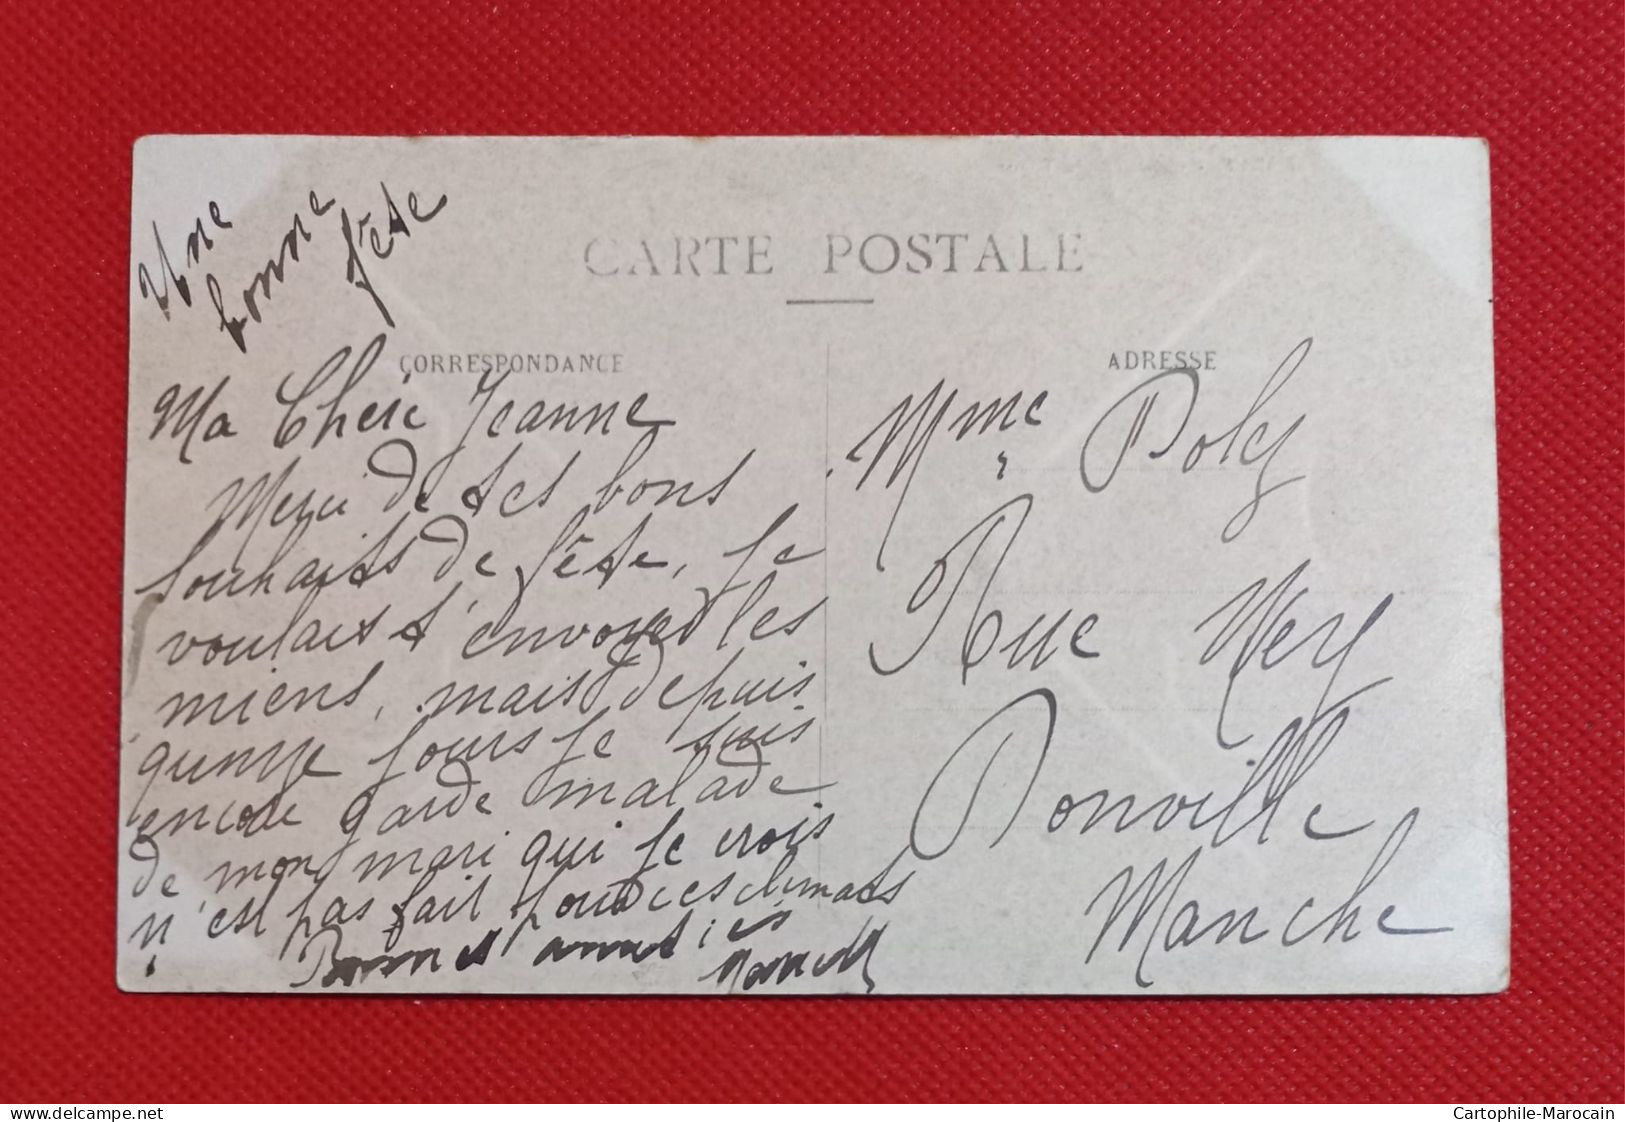 Une
bonne
fête
CARTE POSTALE
CORRESPONDANCE
Ma Chère Jeanne
Merci de tes bons
souhaits de fête, je
voulais t'envoyer les
miens, mais depuis
quinze jours je suis
encore garde malade
de mon mari qui je crois
n'est pas fait pour ces climats
Bonnes amitiés
ADRESSE
Mme Poley
Rue Ney
Donville
Manche
www.delcampe.net
Cartophile-Marocain